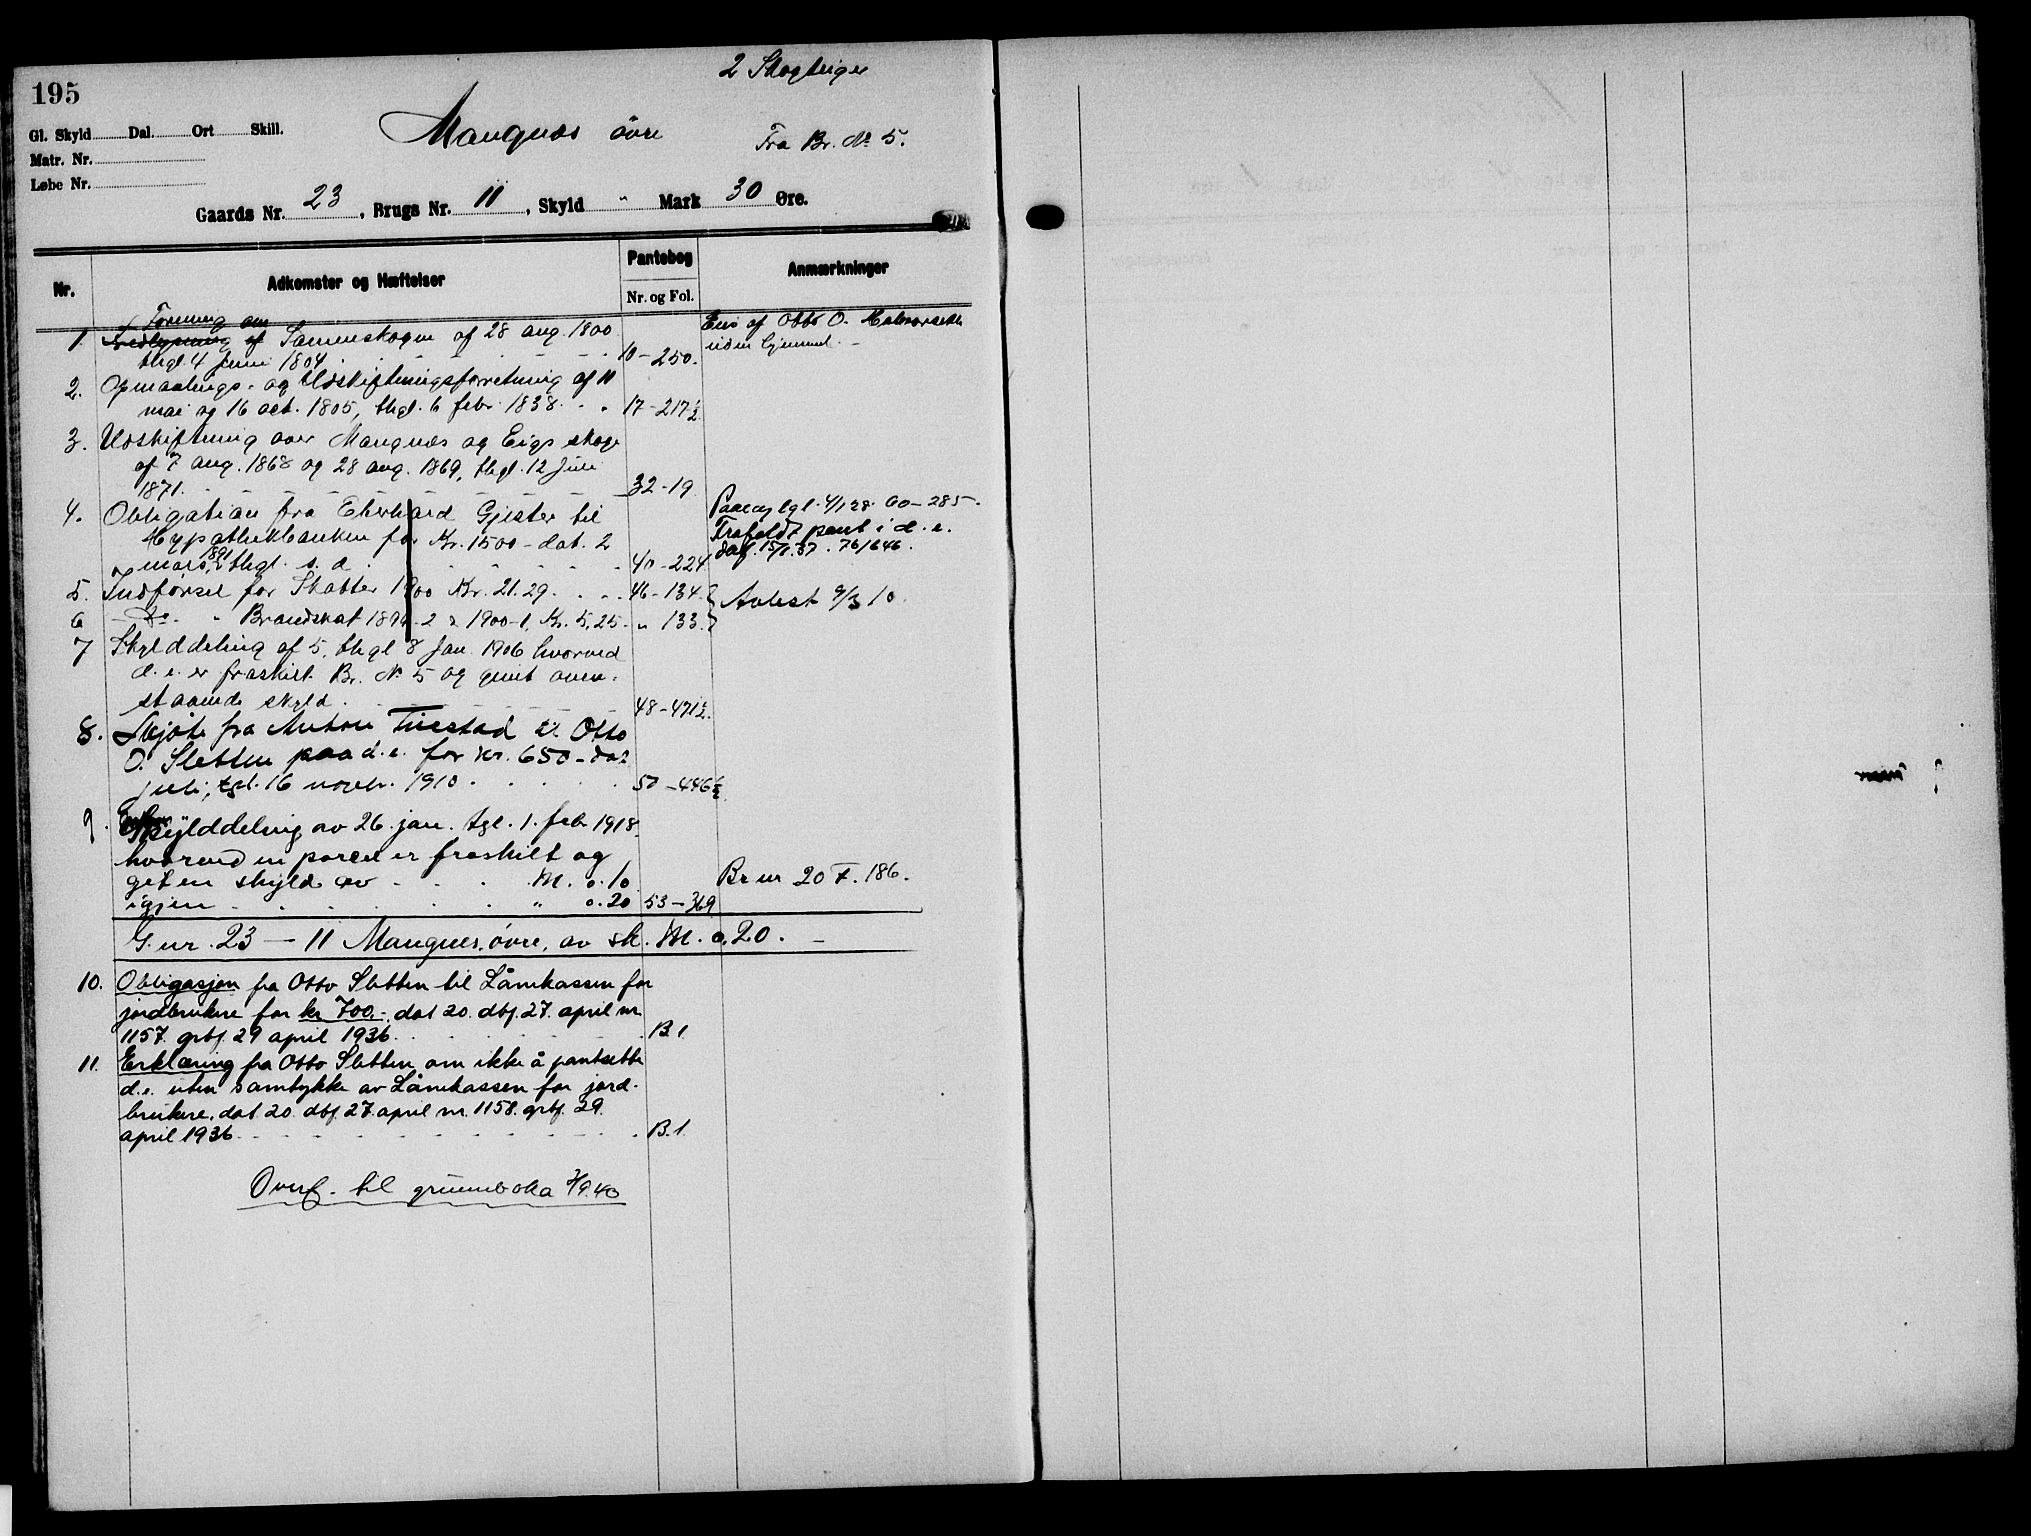 195
2 Skogteiger
Gl. Skyld Dal. Ort Skill.
Mangnæs övre
Fra Br. No 5.
Matr. Nr.
Løbe Nr.
Gaards Nr. 23, Brugs Nr. 11, Skyld " Mark 30 Øre.
Nr. Adkomster og Hæftelser Pantebog Nr. og Fol. Anmærkninger
Forening om
1. Fredlysning af Sameskogen af 28 aug. 1800
thgl. 4 Juni 1804 10-250.
Eies af Otto O.
uden hjemmel. -
2. Opmaalings- og Udskiftningsforretning af 11
mai og 16 oct. 1805, thgl. 6 febr. 1838 17-217½
3. Udskiftning over Mangnæs og Eigs skoge
af 7 aug. 1868 og 28 aug. 1869, thgl. 12 Juli
1871. 32-19
4. Obligation fra Eberhard Gjester til
Hypothekbanken for Kr. 1500 - dat. 2
mars 1891, thgl. s. d. 40-224
tgl. 4/1 28. 60-285.
Frafaldt pant i d. e.
dat. 15/1.37. 76/646.
5. Indførsel for Skatter 1900 Kr. 21.29. 46-134.
6 - Do. " Brandskat 1891-2 & 1900-1, Kr. 5,25 " 133.
Avlest 9/3 10.
7 Skylddeling af 5, thgl 8 Jan. 1906 hvorved
d. e. er fraskilt Br. No 5 og givet oven-
staaende skyld. 48-471½.
8. Skjøte fra Anton Tuestad til Otto
O. Sletten paa d. e. for kr. 650 - dat
juli, tgl. 16 novebr. 1910 50-446½
9. Skylddeling av 26. jan. tgl. 1. feb. 1918
hvorved en parcel er fraskilt og
git en skyld av M. 0.10
Br nr 20 F. 186.
igjen " 0.20 53-369
G. nr. 23 - 11 Mangnes, övre, av sk. M. 0.20. -
10. Obligasjon fra Otto Sletten til Lånekassen for
jordbrukere for kr 700.- dat 20. dbf. 27. april nr
1157. grbf. 29 april 1936 B.1
11. Erklæring fra Otto Sletten om ikke å pantsette
d. e. uten samtykke av Lånekassen for jord-
brukere, dat 20. dbf. 27. april nr. 1158. grbf. 29.
april 1936 B.1.
Overf. til grunnboka 7/9.40